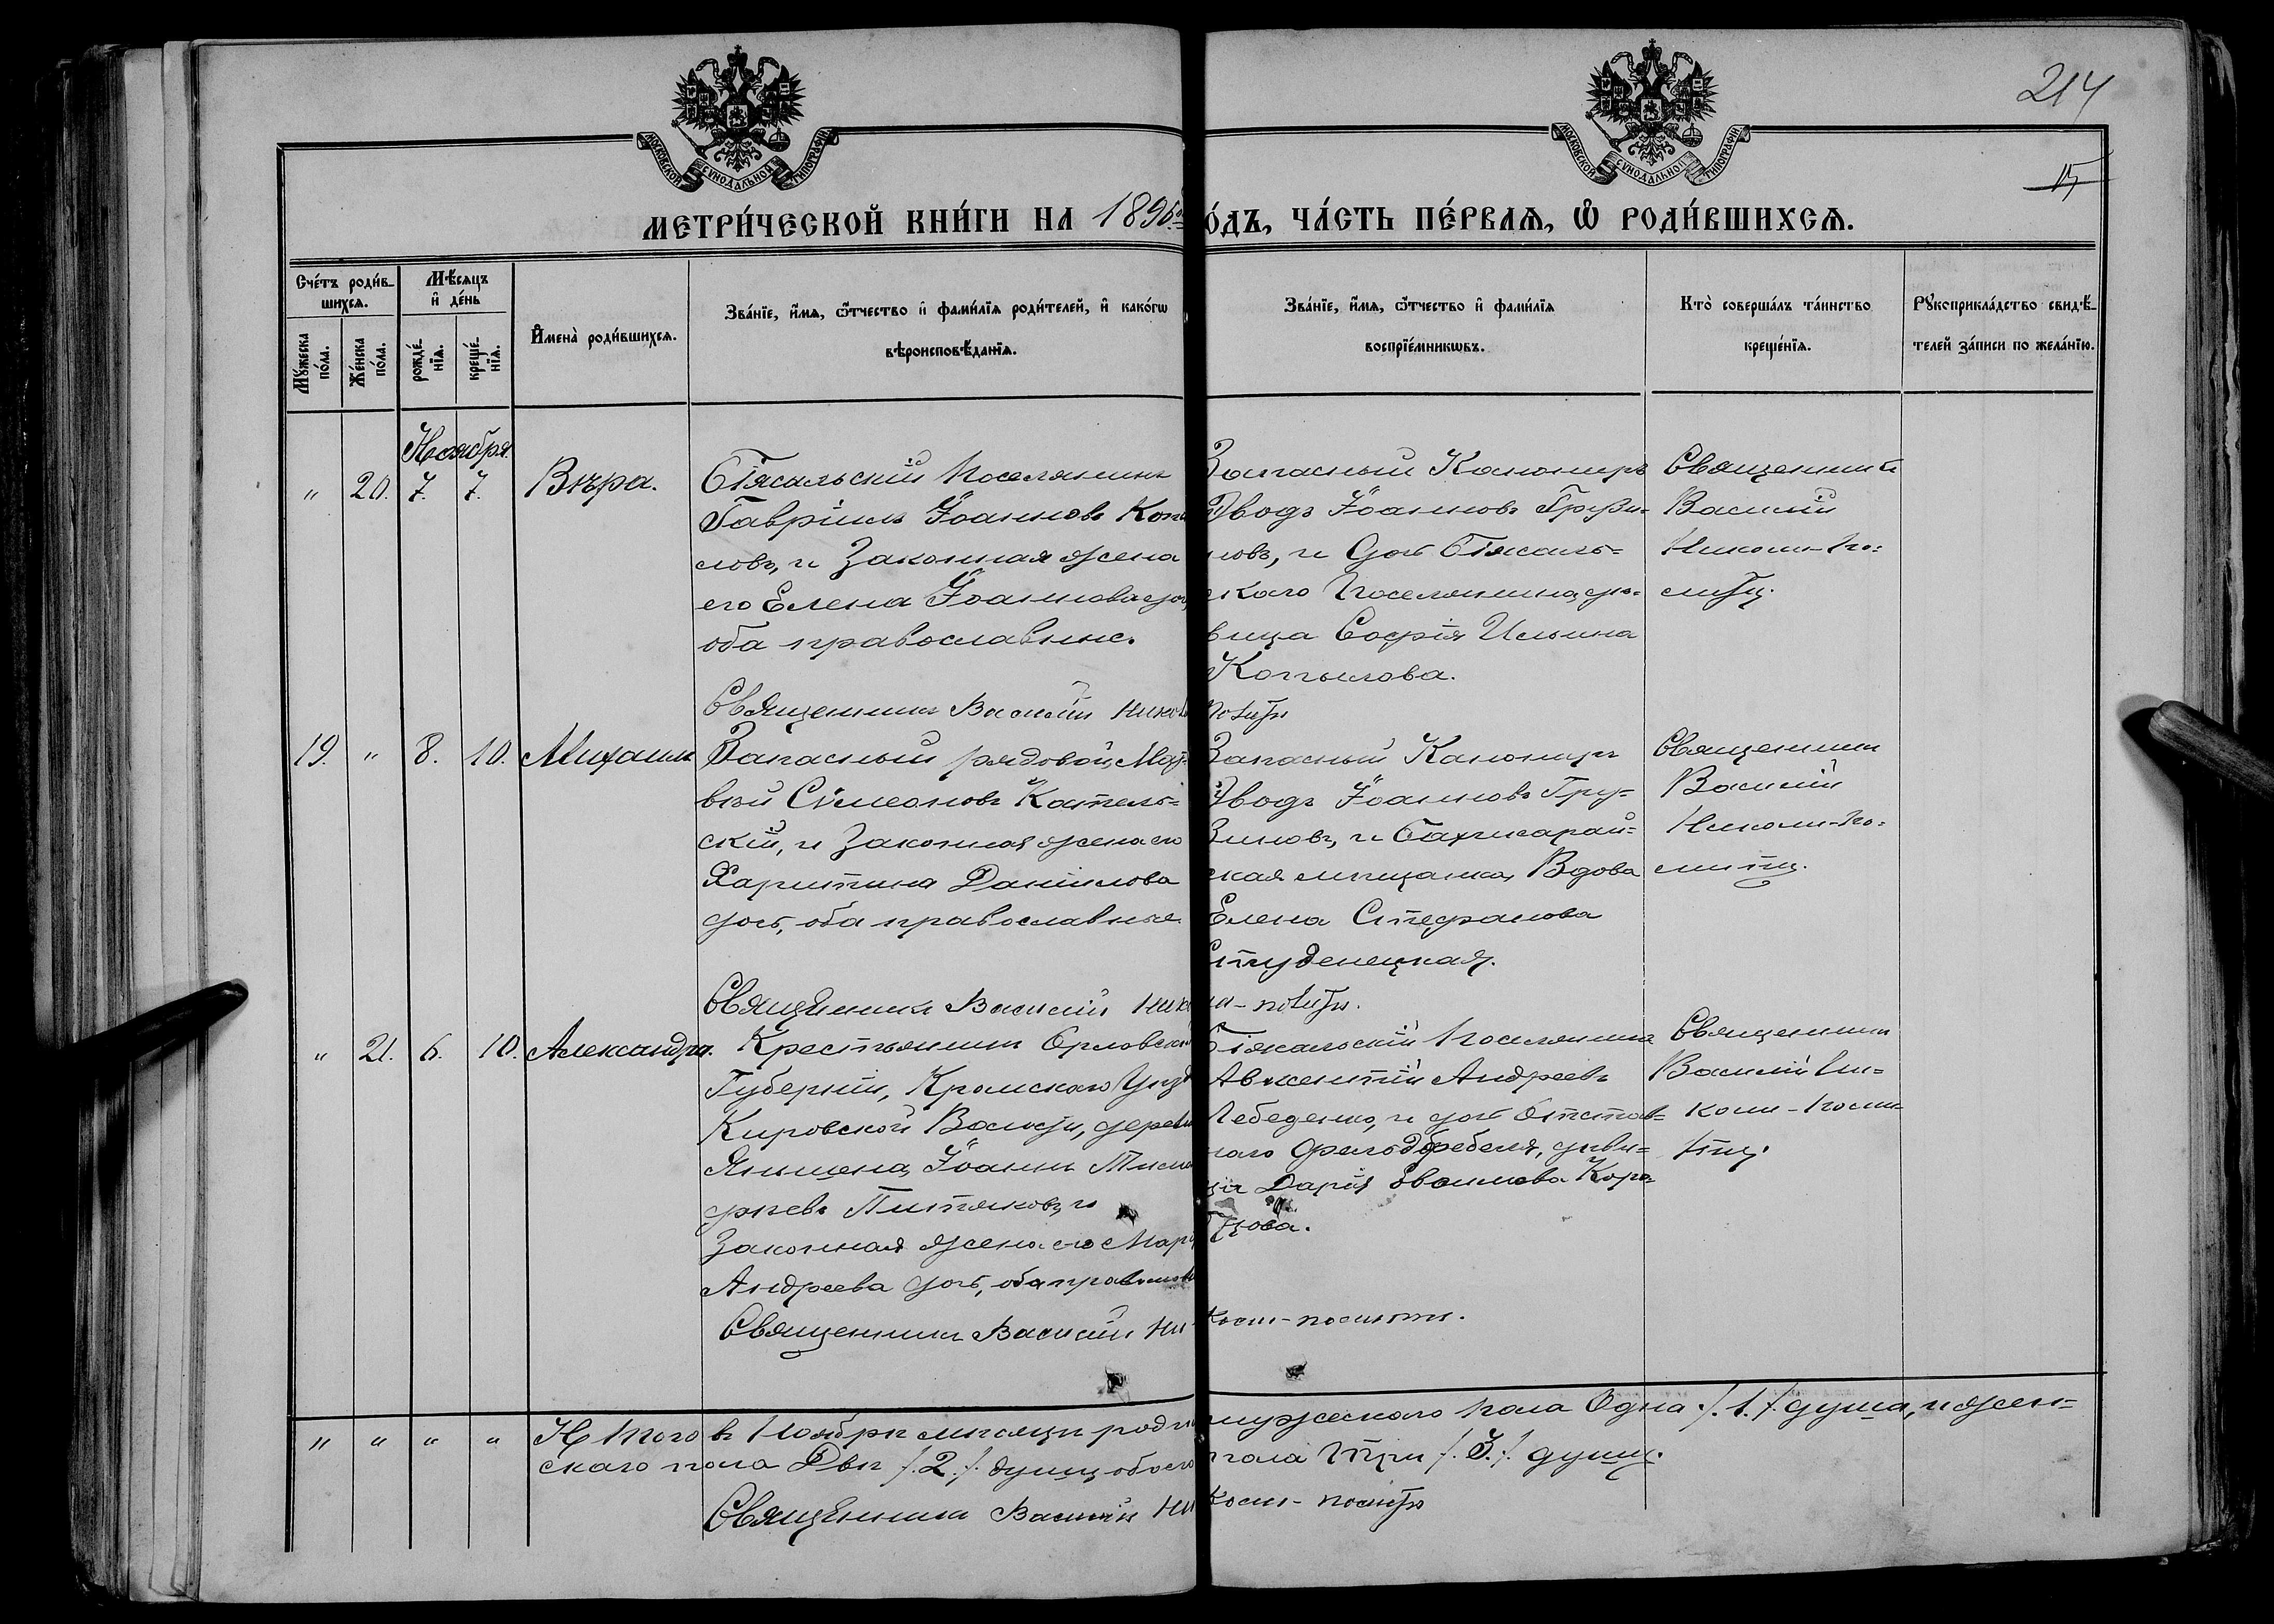 214
15
МОСКОВСКОЙ СѴНОДАЛЬНОЙ ТИПОГРАФІИ
МОСКОВСКОЙ СѴНОДАЛЬНОЙ ТИПОГРАФІИ
МЕТРИ́ЧЕСКОЙ КНИ́ГИ НА 1896 О́ДЪ, ЧА́СТЬ ПЕ́РВАѦ, Ѿ РОДИ́ВШИХСѦ.
Сче́тъ роди́в-
шихсѧ.
Мꙋ́жеска по́ла.
Же́нска по́ла.
Мѣ́сѧцъ и҆ де́нь
рожде́нїѧ.
креще́нїѧ.
И҆мена̀ роди́вшихсѧ.
Зва́нїе, и҆́мѧ, ѻ҆́тчество и҆ фами́лїѧ роди́телей, и҆ како́гѡ
вѣроисповѣ́данїѧ.
Зва́нїе, и҆́мѧ, ѻ҆́тчество и҆ фами́лїѧ
воспрїе́мникѡвъ.
Кто̀ соверша́лъ та́инство
креще́нїѧ.
Рꙋкоприкла́дство свидѣ́-
телей за́писи по жела́нїю.
Ноября.
" 20. 7. 7. Вѣра.
Біясальскій Поселянинъ
Гавріилъ Іоанновъ Копы
ловъ, и Законная жена
его Елена Іоаннова доч
оба православные.
Священникъ Василій Нико
Запасный Канониръ
Іоанновъ Грузи=
новъ, и дочь Біясаль=
скаго Поселянина, дѣ=
вица Софія Ильина
Копылова.
Священникъ
Василій
Николи-По=
лити.
19. " 8. 10. Михаилъ
Запасный рядовой, Мат=
вѣй Симеоновъ Катель=
скій, и Законная жена его
Харитина Даніилова
дочь, оба православные.
Священникъ Василій Нико
Запасный Канониръ
Іоанновъ Гру=
зиновъ, и Бахчисарай=
ская мѣщанка, Вдова
Елена Стефанова
Студенецкая.
ли-полити.
Священникъ
Василій
Николи-По=
лити.
" 21. 6. 10. Александра.
Крестьянинъ Орловской
Губерніи, Кромскаго Уѣзд
Кировской Волости, дерев
Іоаннъ Тимо
фѣевъ Питяковъ, и
Законная жена его Марі
Андреева дочь, оба православ
Священникъ Василій Ни
Біясальскій Поселянинъ
Авксентій Андреевъ
Лебеденко, и дочь Отстав=
наго фельдфебеля, дѣви=
ца Дарія
коли-полити.
Священникъ
Василій Ни=
коли-Поли=
ти.
" " " " Итого въ Ноябрѣ мѣсяцѣ роди мужескаго пола Одна /.1./ душа, и жен=
скаго пола Двѣ /.2./ души, обоего пола Три /.3./ души.
Священникъ Василій Ни коли-полити